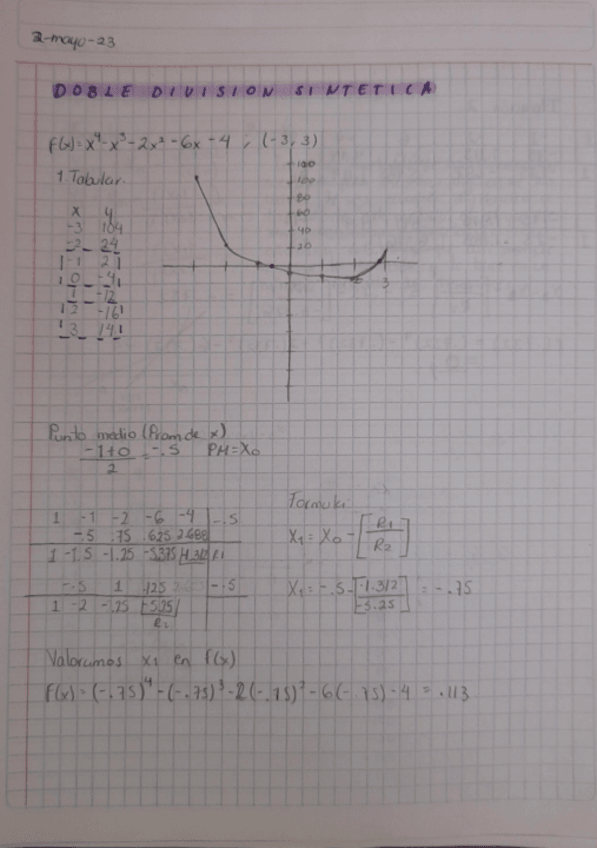 2-mayo-23
DOBLE DIVISION SINTETICA
f(x)=x⁴-x³-2x²-6x-4 ; (-3,3)
1. Tabular.
x y
-3 104
-2 24
-1 2
0 -4
1 -12
2 -16
3 14
100
80
60
40
20
3
Punto medio (Prom de x)
-1+0
2
= -.5 PM=X₀
1 -1 -2 -6 -4 | -.5
-.5 .75 .625 2.688
1 -1.5 -1.25 -5.375 -1.312 R1
-.5 1 .125 | -.5
1 -2 -.25 -5.25
R₂
Formula:
X₁ = X₀ - [R1/R2]
X₁ = -.5 - [-1.312/-5.25] = -.75
Valoramos x₁ en f(x)
f(x)=(-.75)⁴-(-.75)³-2(-.75)²-6(-.75)-4 = .113